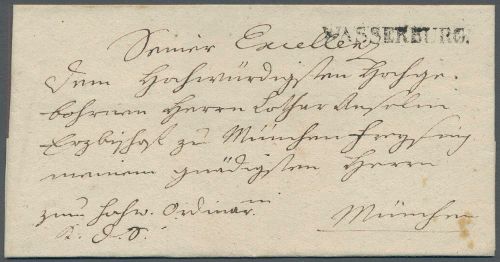 WASSERBURG.
Seiner Excellenz
dem Hochwürdigsten Hochge-
bohrnen Herrn Lothar Anselm
Erzbischof zu München Freysing
meinem gnädigsten Herrn
zum hochw. Ordinar.
München